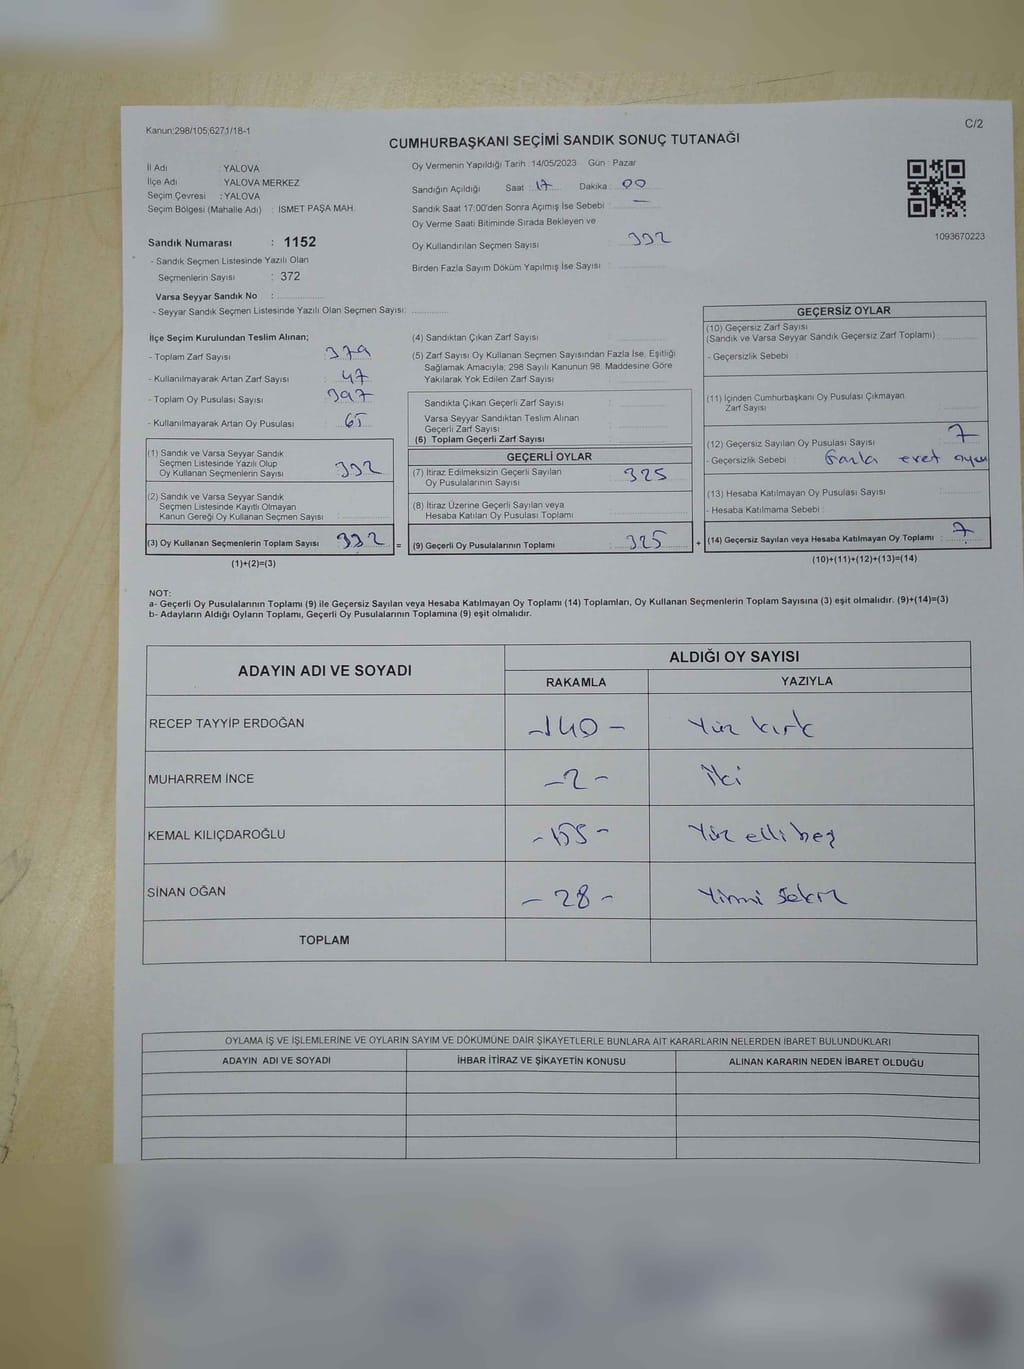 Kanun:298/105;6271/18-1
C/2
CUMHURBAŞKANI SEÇİMİ SANDIK SONUÇ TUTANAĞI
İl Adı : YALOVA
İlçe Adı : YALOVA MERKEZ
Seçim Çevresi : YALOVA
Seçim Bölgesi (Mahalle Adı) : İSMET PAŞA MAH.
Sandık Numarası : 1152
- Sandık Seçmen Listesinde Yazılı Olan
Seçmenlerin Sayısı : 372
Varsa Seyyar Sandık No :
- Seyyar Sandık Seçmen Listesinde Yazılı Olan Seçmen Sayısı:
Oy Vermenin Yapıldığı Tarih : 14/05/2023 Gün : Pazar
Sandığın Açıldığı Saat : 17 Dakika : 00
Sandık Saat 17:00'den Sonra Açımış İse Sebebi : —
Oy Verme Saati Bitiminde Sırada Bekleyen ve
Oy Kullandırılan Seçmen Sayısı 332
Birden Fazla Sayım Döküm Yapılmış İse Sayısı :
1093670223
İlçe Seçim Kurulundan Teslim Alınan;
- Toplam Zarf Sayısı : 379
- Kullanılmayarak Artan Zarf Sayısı : 47
- Toplam Oy Pusulası Sayısı : 397
- Kullanılmayarak Artan Oy Pusulası : 65
(1) Sandık ve Varsa Seyyar Sandık
Seçmen Listesinde Yazılı Olup
Oy Kullanan Seçmenlerin Sayısı 332
(2) Sandık ve Varsa Seyyar Sandık
Seçmen Listesinde Kayıtlı Olmayan
Kanun Gereği Oy Kullanan Seçmen Sayısı :
(3) Oy Kullanan Seçmenlerin Toplam Sayısı 332 =
(1)+(2)=(3)
(4) Sandıktan Çıkan Zarf Sayısı :
(5) Zarf Sayısı Oy Kullanan Seçmen Sayısından Fazla İse, Eşitliği
Sağlamak Amacıyla; 298 Sayılı Kanunun 98. Maddesine Göre
Yakılarak Yok Edilen Zarf Sayısı :
Sandıkta Çıkan Geçerli Zarf Sayısı :
Varsa Seyyar Sandıktan Teslim Alınan
Geçerli Zarf Sayısı :
(6) Toplam Geçerli Zarf Sayısı :
GEÇERLİ OYLAR
(7) İtiraz Edilmeksizin Geçerli Sayılan
Oy Pusulalarının Sayısı : 325
(8) İtiraz Üzerine Geçerli Sayılan veya
Hesaba Katılan Oy Pusulası Toplamı :
(9) Geçerli Oy Pusulalarının Toplamı : 325 +
GEÇERSİZ OYLAR
(10) Geçersiz Zarf Sayısı
(Sandık ve Varsa Seyyar Sandık Geçersiz Zarf Toplamı) :
- Geçersizlik Sebebi :
(11) İçinden Cumhurbaşkanı Oy Pusulası Çıkmayan
Zarf Sayısı :
(12) Geçersiz Sayılan Oy Pusulası Sayısı : 7
- Geçersizlik Sebebi : Fazla evet oyu
(13) Hesaba Katılmayan Oy Pusulası Sayısı :
- Hesaba Katılmama Sebebi :
(14) Geçersiz Sayılan veya Hesaba Katılmayan Oy Toplamı : 7
(10)+(11)+(12)+(13)=(14)
NOT:
a- Geçerli Oy Pusulalarının Toplamı (9) ile Geçersiz Sayılan veya Hesaba Katılmayan Oy Toplamı (14) Toplamları, Oy Kullanan Seçmenlerin Toplam Sayısına (3) eşit olmalıdır. (9)+(14)=(3)
b- Adayların Aldığı Oyların Toplamı, Geçerli Oy Pusulalarının Toplamına (9) eşit olmalıdır.
ADAYIN ADI VE SOYADI
ALDIĞI OY SAYISI
RAKAMLA YAZIYLA
RECEP TAYYİP ERDOĞAN -140- Yüz kırk
MUHARREM İNCE -2- İki
KEMAL KILIÇDAROĞLU -155- Yüz elli beş
SİNAN OĞAN -28- Yirmi sekiz
TOPLAM
OYLAMA İŞ VE İŞLEMLERİNE VE OYLARIN SAYIM VE DÖKÜMÜNE DAİR ŞİKAYETLERLE BUNLARA AİT KARARLARIN NELERDEN İBARET BULUNDUKLARI
ADAYIN ADI VE SOYADI İHBAR İTİRAZ VE ŞİKAYETİN KONUSU ALINAN KARARIN NEDEN İBARET OLDUĞU